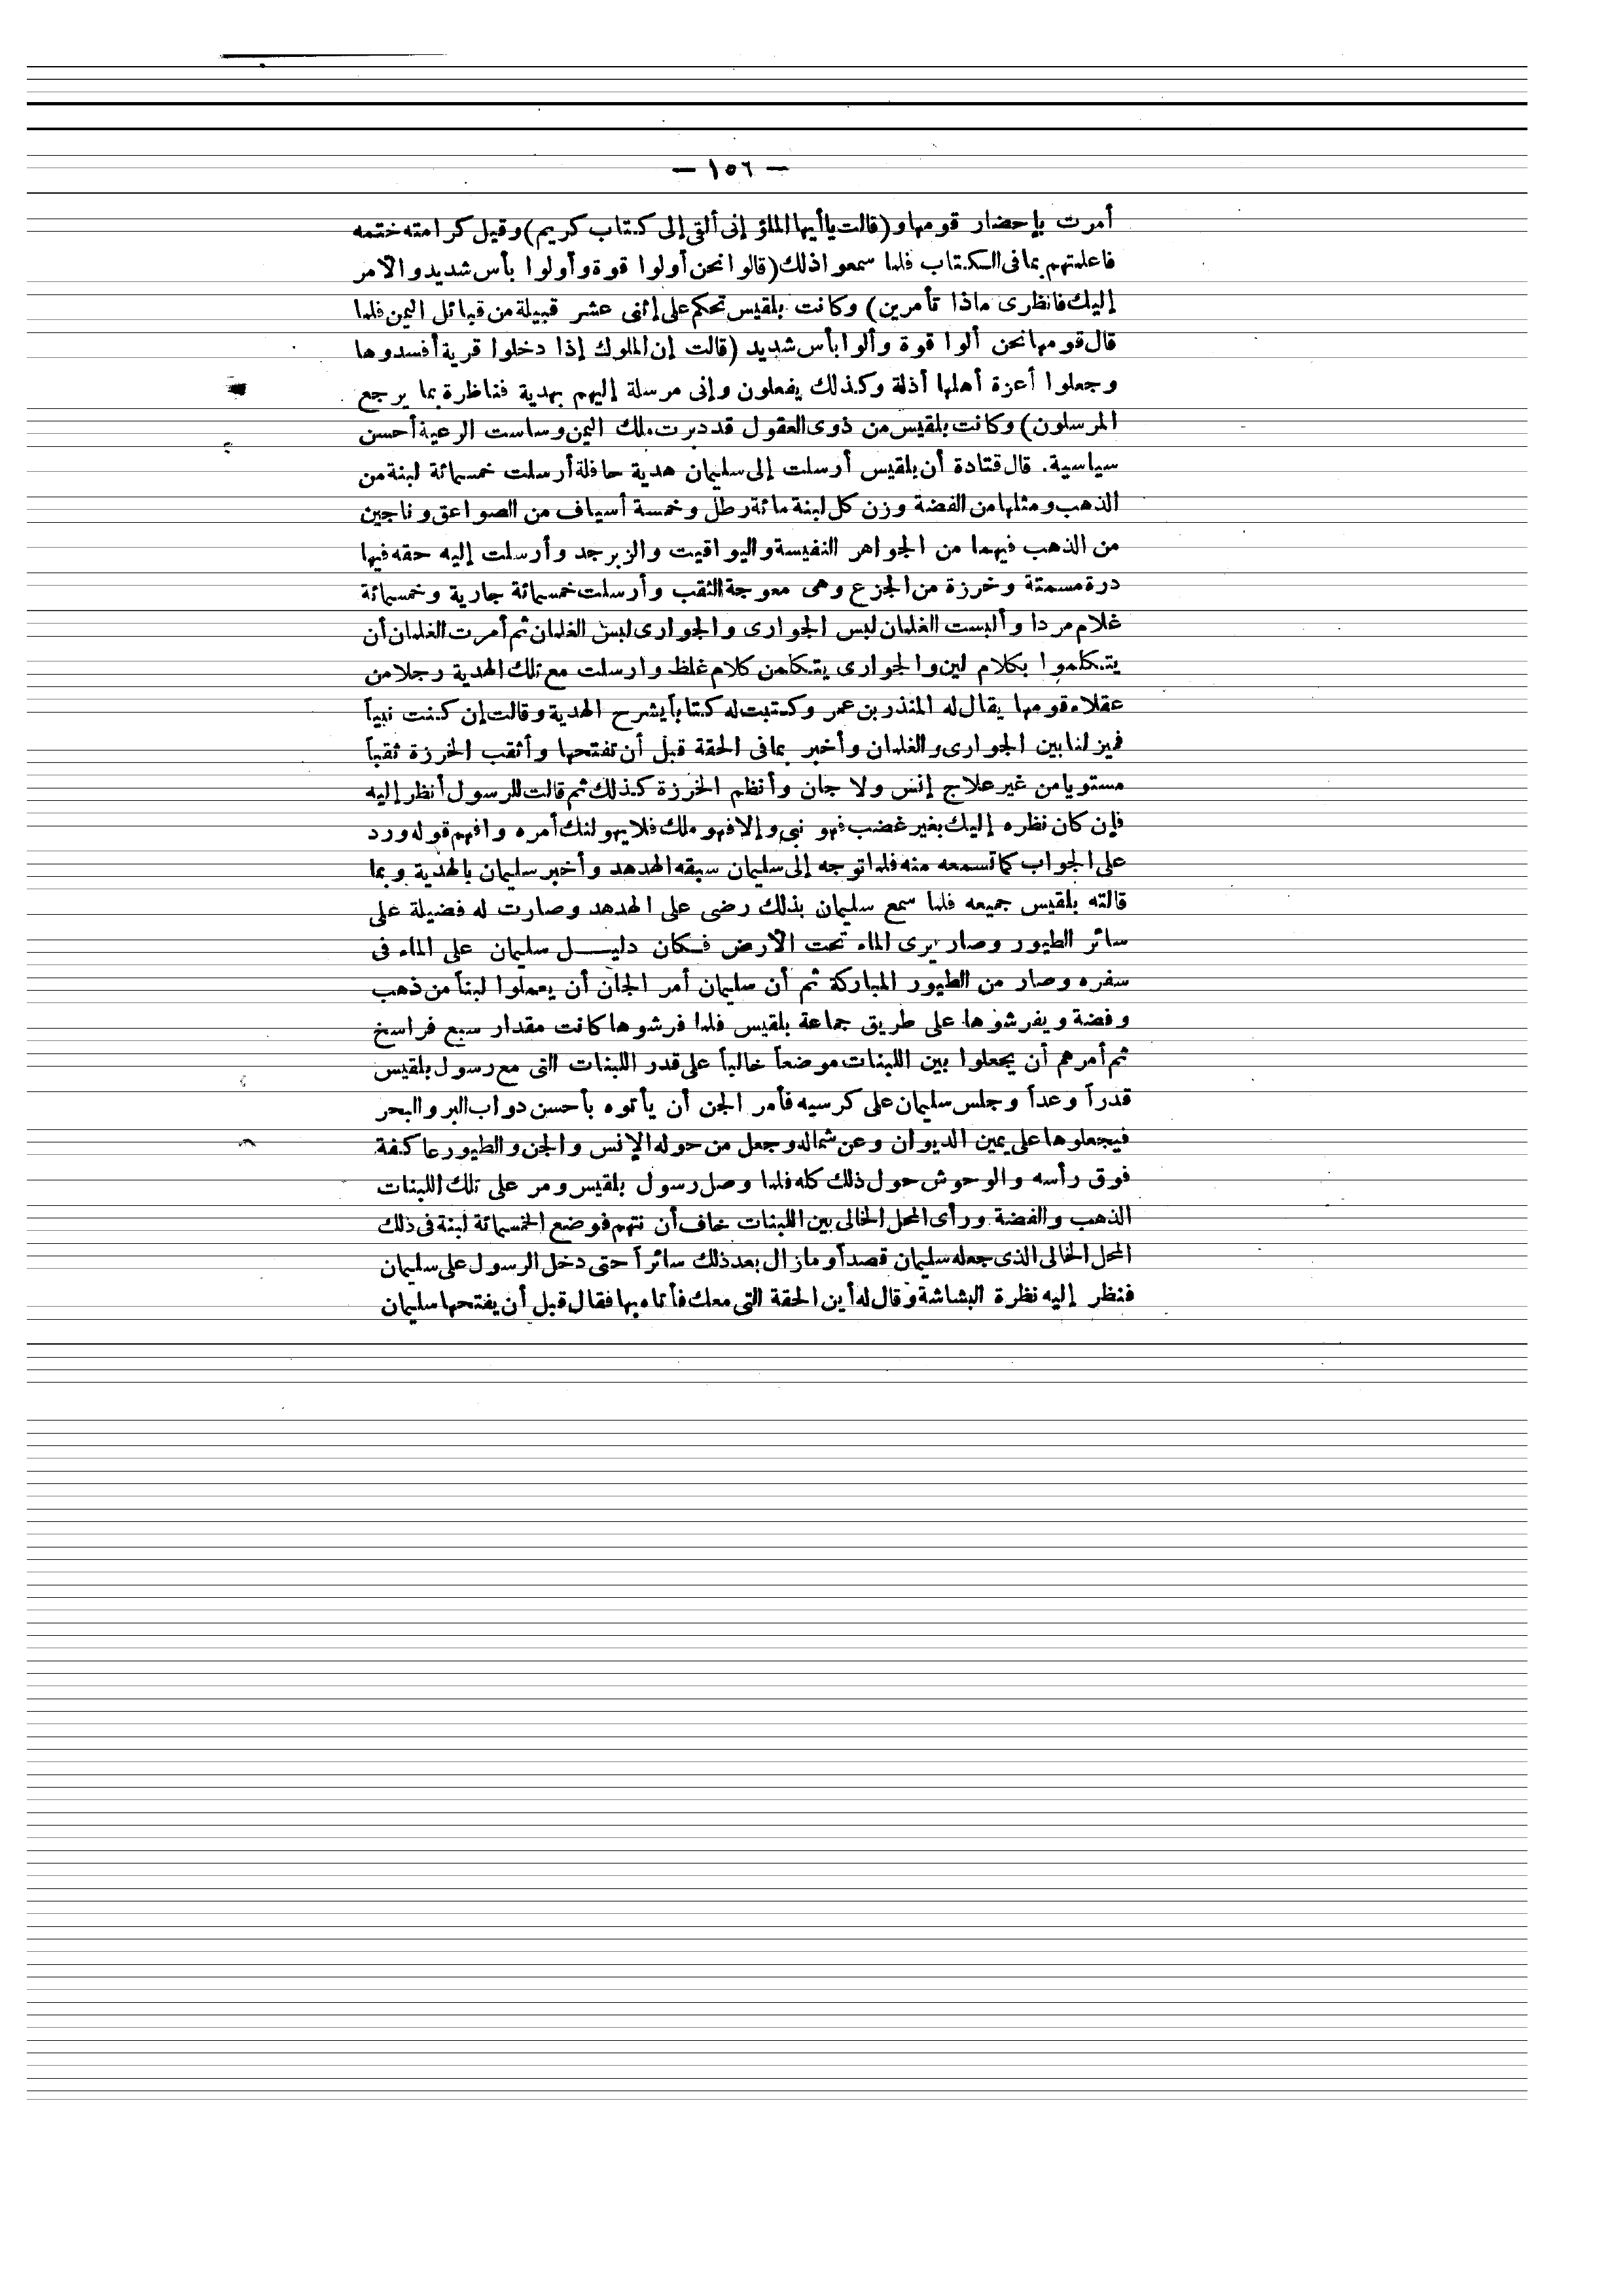 — ١٥٦ —
أمرت بإحضار قومها و(قالت ياأيها الملؤ إنى ألقى إلى كتاب كريم) وقيل كرامته ختمه
فاعلمتهم بما فى الكتاب فلما سمعوا ذلك (قالوا نحن أولوا قوة وأولوا بأس شديد والأمر
إليك فانظرى ماذا تأمرين) وكانت بلقيس تحكم على إثنى عشر قبيلة من قبائل اليمن فلما
قال قومها نحن ألوا قوة وألوا بأس شديد (قالت إن الملوك إذا دخلوا قرية أفسدوها
وجعلوا أعزة أهلها أذلة وكذلك يفعلون وإنى مرسلة إليهم بهدية فناظرة بما يرجع
المرسلون) وكانت بلقيس من ذوى العقول قد دبرت ملك اليمن وساست الرعية أحسن
سياسية. قال قتادة أن بلقيس أرسلت إلى سليمان هدية حافلة أرسلت خمسمائة لبنة من
الذهب ومثلها من الفضة وزن كل لبنة مائة رطل وخمسة أسياف من الصواعق وتاجين
من الذهب فيهما من الجواهر النفيسة واليواقيت والزبرجد وأرسلت إليه حقه فيها
درة مسمتة وخرزة من الجزع وهى معوجة الثقب وأرسلت خمسمائة جارية وخمسمائة
غلام مردا وألبست الغلمان لبس الجوارى والجوارى لبس الغلمان ثم أمرت الغلمان أن
يتكلموا بكلام لين والجوارى يتكلمن كلام غلظ وارسلت مع تلك الهدية رجلا من
عقلاء قومها يقال له المنذر بن عمر وكتبت له كتابا يشرح الهدية وقالت إن كنت نبياً
فميز لنا بين الجوارى والغلمان وأخبر بما فى الحقة قبل أن تفتحها وأثقب الخرزة ثقباً
مستويا من غير علاج إنس ولا جان وأنظم الخرزة كذلك ثم قالت للرسول أنظر إليه
فإن كان نظره إليك بغير غضب فهو نبى وإلا فهو ملك فلا يهولنك أمره وافهم قوله ورد
على الجواب كما تسمعه منه فلما توجه إلى سليمان سبقه الهدهد وأخبر سليمان بالهدية وبما
قالته بلقيس جميعه فلما سمع سليمان بذلك رضى على الهدهد وصارت له فضيلة على
سائر الطيور وصار يرى الماء تحت الأرض فكان دليل سليمان على الماء فى
سفره وصار من الطيور المباركة ثم أن سليمان أمر الجان أن يعملوا لبناً من ذهب
وفضة ويفرشوها على طريق جماعة بلقيس فلما فرشوها كانت مقدار سبع فراسخ
ثم أمرهم أن يجعلوا بين اللبنات موضعاً خالياً على قدر اللبنات التى مع رسول بلقيس
قدراً وعداً وجلس سليمان على كرسيه فأمر الجن أن يأتوه بأحسن دواب البر والبحر
فيجعلوها على يمين الديوان وعن شماله وجعل من حوله الإنس والجن والطيور عاكفة
فوق رأسه والوحوش حول ذلك كله فلما وصل رسول بلقيس ومر على تلك اللبنات
الذهب والفضة ورأى المحل الخالى بين اللبنات خاف أن نتهم فوضع الخمسمائة لبنة فى ذلك
المحل الخالى الذى جعله سليمان قصداً ومازال بعد ذلك سائراً حتى دخل الرسول على سليمان
فنظر إليه نظرة البشاشة وقال له أين الحقة التى معك فأتاه بها فقال قبل أن يفتحها سليمان